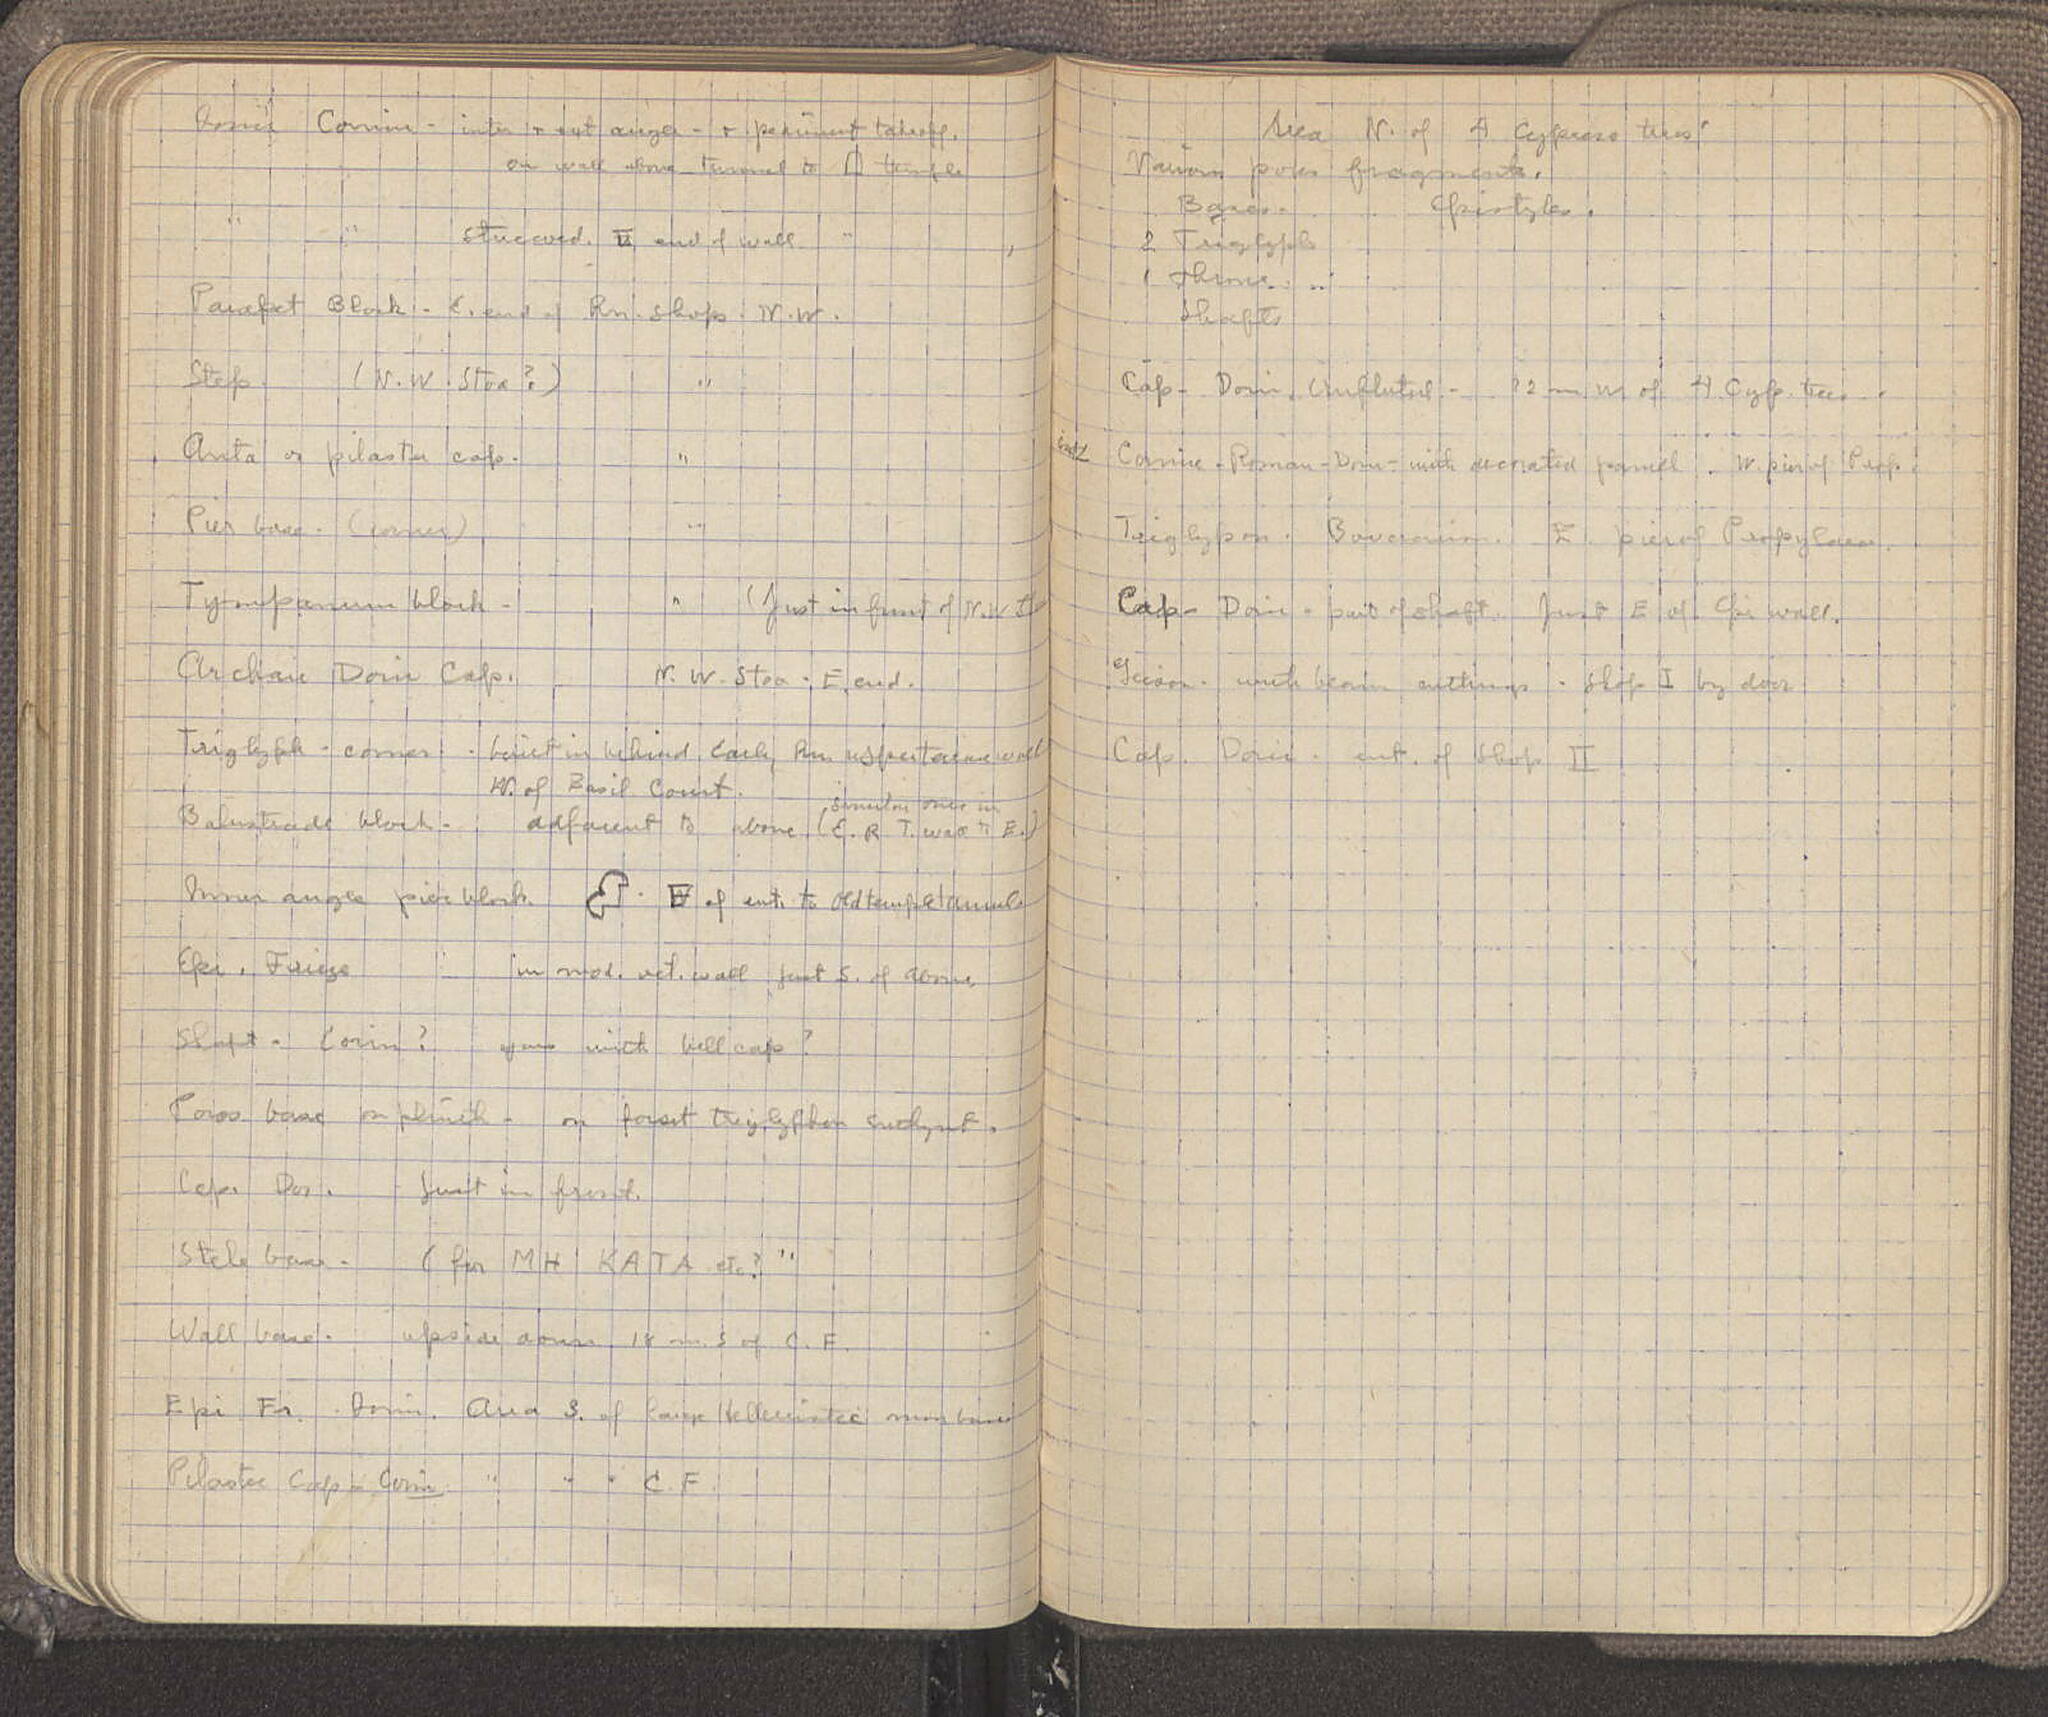 Ionic Cornice - inter & ext angle - & pediment takeoff.
on wall above tunnel to temple
" " stuccoed. end of wall "
Parapet Block - E. end of Rm. Shops. N.W.
Step. (N.W. Stoa?) "
Anta or pilaster cap. "
Pier base - (corner) "
Tympanum block - " (Just in front of N.W.
Archaic Doric Cap. N.W. Stoa. E. end.
Triglyph - corner - built in behind Early Rm. wall
W. of Basil Court.
similar ones in
Balustrade block - adjacent to above (E. R T. wall to E.)
Inner angle pier block. of ent. to Old temple tunnel
Epi. Frieze " in mod. ret. wall just S. of above
Shaft - Corin? goes with bell cap?
Poros base on plinth - on triglyphon
Cap. Dor. - Just in front.
Stele base - (for MH KATA etc? "
Wall base. upside down 18 m. S of C. F.
Epi Fr. Ionic. Area S. of large Hellenistic mon base
Pilaster Cap - Corin. " " " C. F.
Area N. of 4 Cypress trees
Various poros fragments.
Bases. Epistyles.
2 Triglyphs
1 throne
Shafts
Cap - Doric, Unfluted - 12 m W. of 4 Cyp. trees.
Cornice - Roman - Doric - with decorated panel. W. pier of Prop.
Triglypon. E. pier of Propylaea.
Cap - Doric - part of shaft. Just E of Epi wall.
Geison - with beam cuttings - Shop I by door
Cap. Doric - ent. of Shop II